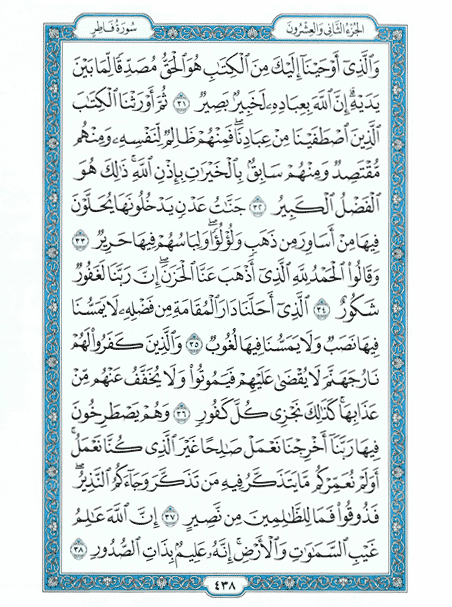 الجزء الثاني والعشرون
سورة فاطر
وَالَّذِي أَوْحَيْنَا إِلَيْكَ مِنَ الْكِتَٰبِ هُوَ الْحَقُّ مُصَدِّقًا لِّمَا بَيْنَ
يَدَيْهِ إِنَّ اللَّهَ بِعِبَادِهِ لَخَبِيرٌ بَصِيرٌ ٣١ ثُمَّ أَوْرَثْنَا الْكِتَٰبَ
الَّذِينَ اصْطَفَيْنَا مِنْ عِبَادِنَا فَمِنْهُمْ ظَالِمٌ لِّنَفْسِهِ وَمِنْهُم
مُّقْتَصِدٌ وَمِنْهُمْ سَابِقٌ بِالْخَيْرَٰتِ بِإِذْنِ اللَّهِ ذَٰلِكَ هُوَ
الْفَضْلُ الْكَبِيرُ ٣٢ جَنَّٰتُ عَدْنٍ يَدْخُلُونَهَا يُحَلَّوْنَ
فِيهَا مِنْ أَسَاوِرَ مِن ذَهَبٍ وَلُؤْلُؤًا وَلِبَاسُهُمْ فِيهَا حَرِيرٌ ٣٣
وَقَالُوا الْحَمْدُ لِلَّهِ الَّذِي أَذْهَبَ عَنَّا الْحَزَنَ إِنَّ رَبَّنَا لَغَفُورٌ
شَكُورٌ ٣٤ الَّذِي أَحَلَّنَا دَارَ الْمُقَامَةِ مِن فَضْلِهِ لَا يَمَسُّنَا
فِيهَا نَصَبٌ وَلَا يَمَسُّنَا فِيهَا لُغُوبٌ ٣٥ وَالَّذِينَ كَفَرُوا لَهُمْ
نَارُ جَهَنَّمَ لَا يُقْضَىٰ عَلَيْهِمْ فَيَمُوتُوا وَلَا يُخَفَّفُ عَنْهُم مِّنْ
عَذَابِهَا كَذَٰلِكَ نَجْزِي كُلَّ كَفُورٍ ٣٦ وَهُمْ يَصْطَرِخُونَ
فِيهَا رَبَّنَا أَخْرِجْنَا نَعْمَلْ صَٰلِحًا غَيْرَ الَّذِي كُنَّا نَعْمَلُ
أَوَلَمْ نُعَمِّرْكُم مَّا يَتَذَكَّرُ فِيهِ مَن تَذَكَّرَ وَجَاءَكُمُ النَّذِيرُ
فَذُوقُوا فَمَا لِلظَّٰلِمِينَ مِن نَّصِيرٍ ٣٧ إِنَّ اللَّهَ عَٰلِمُ
غَيْبِ السَّمَٰوَٰتِ وَالْأَرْضِ إِنَّهُ عَلِيمٌ بِذَاتِ الصُّدُورِ ٣٨
٤٣٨